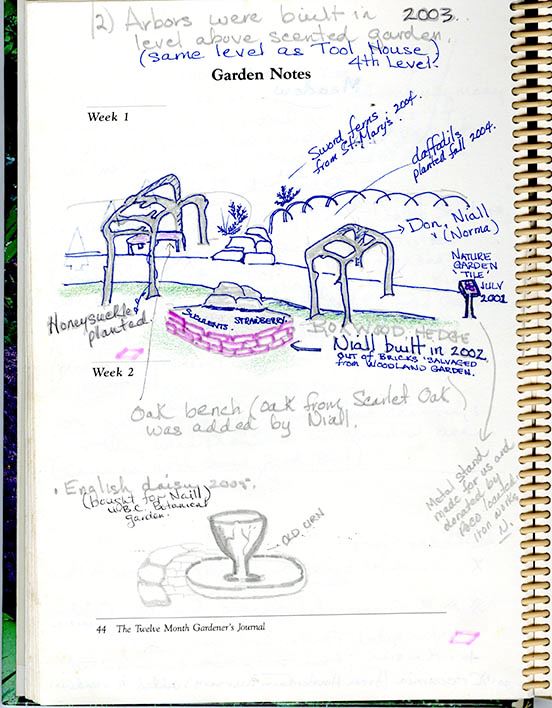 2) Arbors were built in 2003.
level above scented garden.
(same level as Tool House)
4th Level.
Garden Notes
Week 1
Sword ferns. 2004.
from St. Mary's.
daffodils
planted fall 2004.
Don, Niall
& (Norma)
NATURE
GARDEN
'TILE'
JULY
2001
Honeysuckle
planted.
SUCULENTS. STRAWBERRY.
BOXWOOD HEDGE
Niall built in 2002
OUT OF BRICKS SALVAGED
from WOODLAND GARDEN.
Week 2
Oak bench (oak from Scarlet Oak)
was added by Niall.
Metal Stand
made for us and
donated by
iron works
N.
English daisy
(bought for Naill)
U.B.C. Botanical
garden.
OLD URN
44 The Twelve Month Gardener's Journal